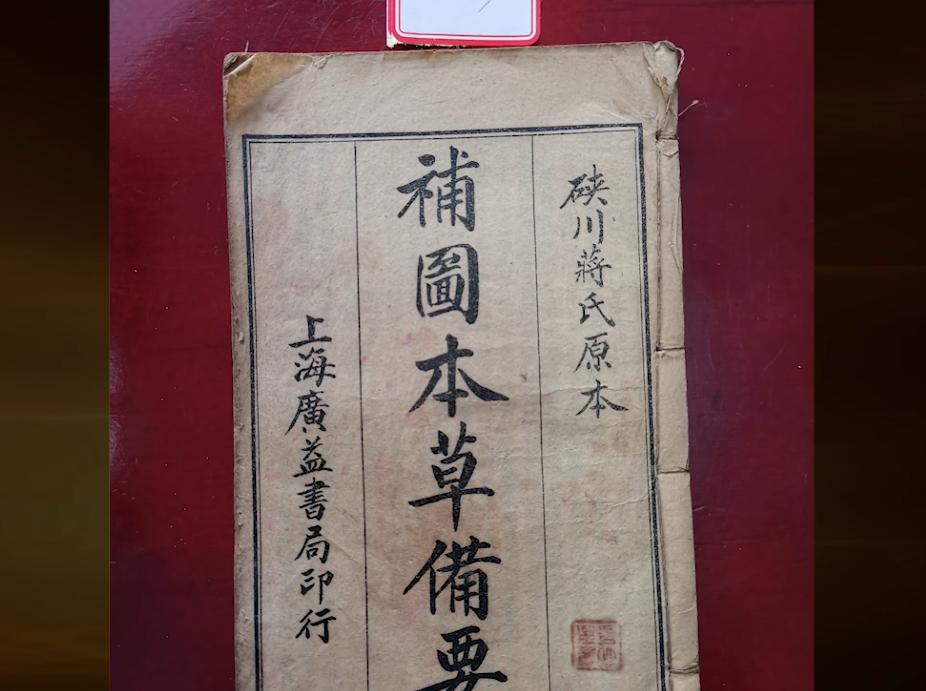 硖川蔣氏原本
補圖本草備要
上海廣益書局印行